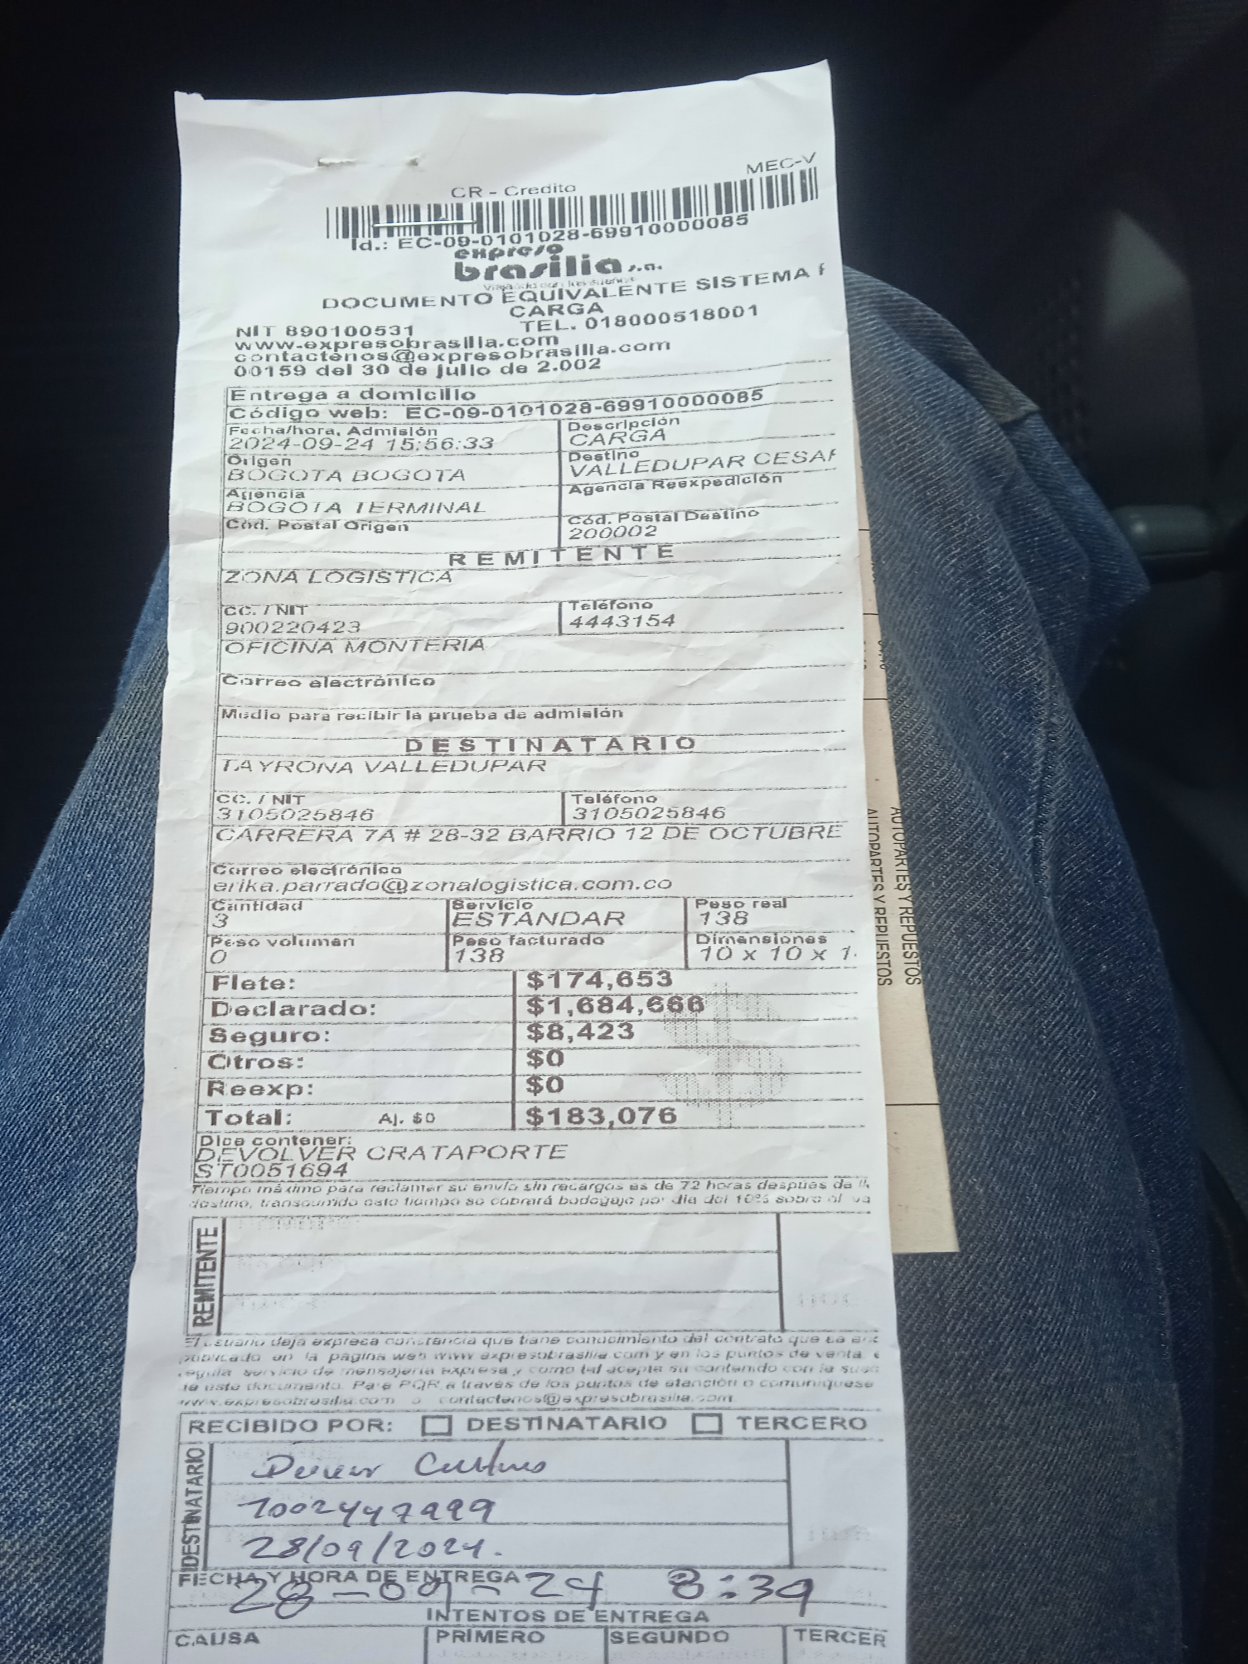 MEC-V
CR - Credito
Id.: EC-09-0101028-69910000085
expreso
brasilia s.a.
DOCUMENTO EQUIVALENTE SISTEMA
CARGA
NIT 890100531 TEL. 018000518001
www.expresobrasilia.com
contactenos@expresobrasilia.com
00159 del 30 de julio de 2.002
Entrega a domicilio
Código web: EC-09-0101028-69910000085
Fecha/hora, Admisión Descripción
2024-09-24 15:56:33 CARGA
Origen Destino
BOGOTA BOGOTA VALLEDUPAR CESAR
Agencia Agencia Reexpedición
BOGOTA TERMINAL
Cód. Postal Origen Cód. Postal Destino
200002
REMITENTE
ZONA LOGISTICA
CC. / NIT Teléfono
900220423 4443154
OFICINA MONTERIA
Correo electrónico
Medio para recibir la prueba de admisión
DESTINATARIO
TAYRONA VALLEDUPAR
CC. / NIT Teléfono
3105025846 3105025846
CARRERA 7A # 28-32 BARRIO 12 DE OCTUBRE
Correo electrónico
erika.parrado@zonalogistica.com.co
Cantidad Servicio Peso real
3 ESTANDAR 138
Peso volumen Peso facturado Dimensiones
0 138 10 x 10 x 1
Flete: $174,653
Declarado: $1,684,666
Seguro: $8,423
Otros: $0
Reexp: $0
Total: Aj. $0 $183,076
Dice contener:
DEVOLVER CRATAPORTE
ST0051694
Tiempo máximo para reclamar su envío sin recargos es de 72 horas después de
destino, transcurrido este tiempo se cobrará bodegaje por día del 10% sobre el va
REMITENTE
El usuario deja expresa constancia que tiene conocimiento del contrato que se
publicado en la página web www.expresobrasilia.com y en los puntos de venta
regula servicio de mensajería expresa y como tal acepta su contenido con la
de este documento. Para PQR a través de los puntos de atención o comuniquese
www.expresobrasilia.com o contactenos@expresobrasilia.com
RECIBIDO POR: DESTINATARIO TERCERO
DESTINATARIO
1002447999
28/09/2024.
FECHA Y HORA DE ENTREGA
28-09-24 8:39
INTENTOS DE ENTREGA
CAUSA PRIMERO SEGUNDO TERCER
AUTOPARTES Y REPUESTOS
AUTOPARTES Y REPUESTOS